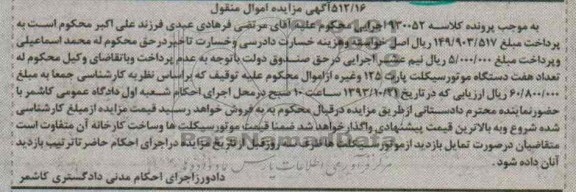 ۵۱۲/۱۶آگهی مزایده اموال منقول
به موجب پرونده کلاسه ۹۳۰۰۵۲ اجرایی محکوم علیه آقای مرتضی فرهادی عبدی فرزند علی اکبر محکوم است به
پرداخت مبلغ ۱۴۹/۹۰۳/۵۱۷ ریال اصل خواسته وهزینه خسارت دادرسی وخسارت تاخیردرحق محکوم له محمد اسماعیلی
وپرداخت مبلغ ۵/۰۰۰/۰۰۰ ریال نیم عشر اجرایی درحق صندوق دولت باتوجه به عدم پرداخت وباتقاضای وکیل محکوم له
تعداد هفت دستگاه موتورسیکلت پارت ۱۲۵ وغیره ازاموال محکوم علیه توقیف که براساس نظریه کارشناسی جمعا به مبلغ
۶۰/۸۰۰/۰۰۰ ریال ارزیابی که در تاریخ ۱۳۹۳/۱۰/۲۱ ساعت ۱۰ صبح درمحل اجرای احکام شعبه اول دادگاه عمومی کاشمر با
حضورنماینده محترم دادستانی ازطریق مزایده درقبال محکوم به به فروش خواهد رسید قیمت مزایده ازمبلغ کارشناسی
شده شروع وبه بالاترین قیمت پیشنهادی واگذارخواهد شد ضمنا قیمت موتورسیکلت ها وساخت کارخانه آن متفاوت است
متقاضیان درصورت تمایل بازدید ازموتورسیکلت ها روز قبل از تاریخ مزایده دراجرای احکام حاضر تاترتیب بازدید
آنان داده شود.
دادورزاجرای احکام مدنی دادگستری کاشمر